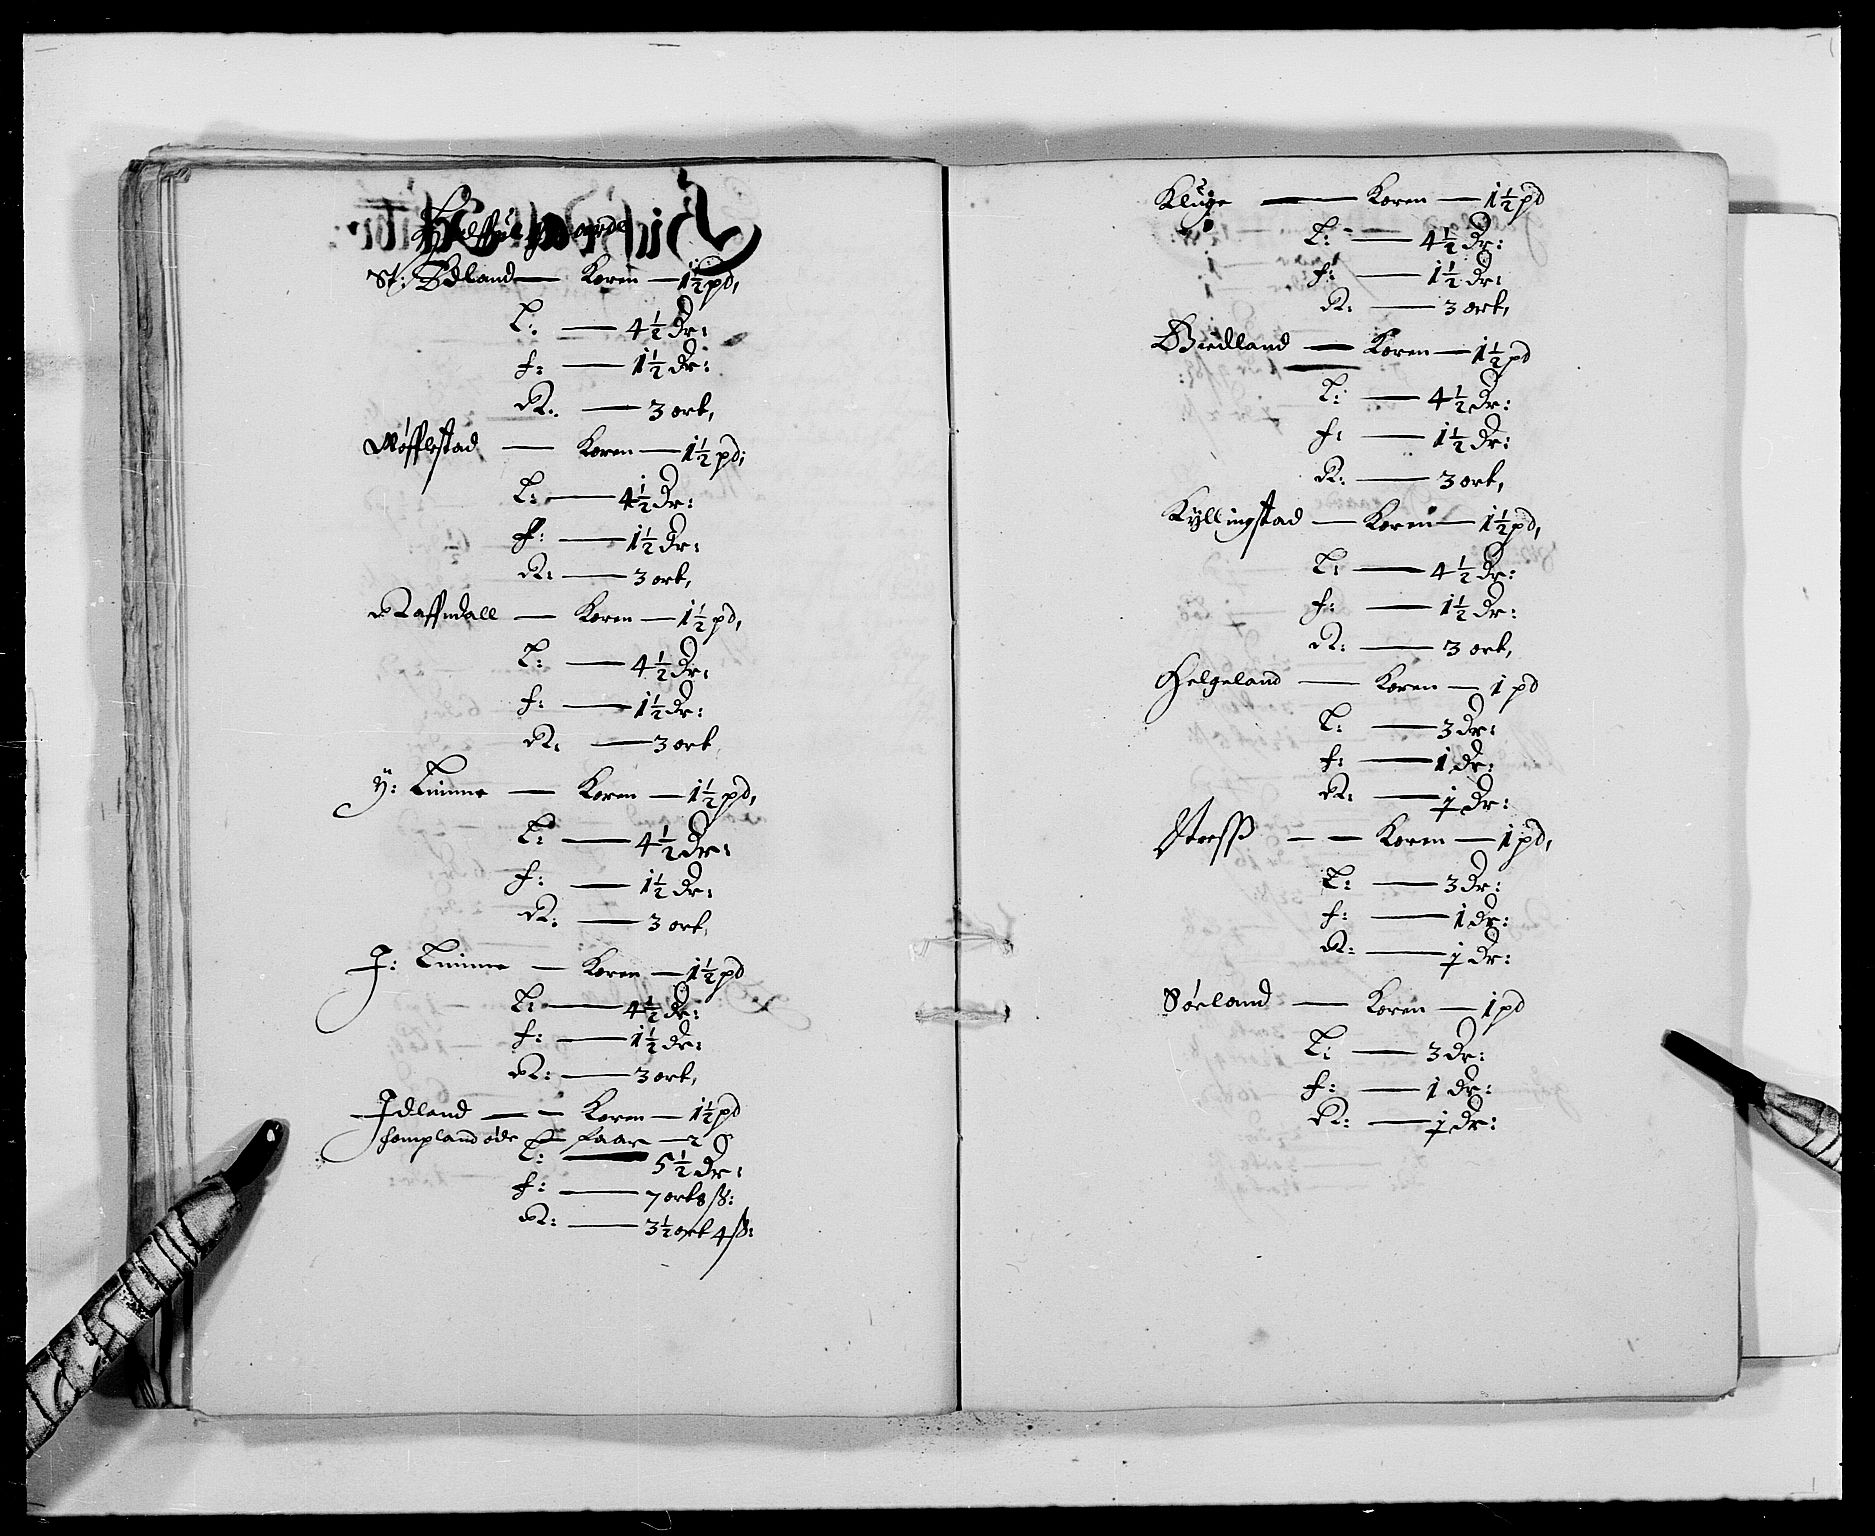 St: Ødland — Koren — 1½ pd,
L: — 4½ Dr:
f: — 1½ Dr:
R: — 3 ort,
Møfflestad — Koren — 1½ pd;
L: — 4½ Dr:
f: — 1½ Dr:
R: — 3 ort,
Raffndall — Koren — 1½ pd,
L: — 4½ Dr:
f: — 1½ Dr:
R: — 3 ort
Y: Limme — Koren — 1½ pd,
L: — 4½ Dr:
f: — 1½ Dr:
R: — 3 ort,
J: Limme — Koren — 1½ pd
L: — 4½ Dr:
f: — 1½ Dr:
R: — 3 ort,
Jdland — — Koren — 1½ pd
Hompland øde faar — 2
L: — 5½ Dr:
f: — 7 ort 8 ß:
R: — 3½ ort 4 ß:
Kluge — Koren — 1½ pd
L: — 4½ Dr:
f: — 1½ Dr:
R: — 3 ort,
Biedland — Koren — 1½ pd
L: — 4½ Dr:
f: — 1½ Dr:
R: — 3 ort,
Kyllingstad — Koren — 1½ pd,
L: — 4½ Dr:
f: — 1½ Dr:
R: — 3 ort,
Helgeland — Koren — 1 pd
L: — 3 Dr:
f: — 1 Dr:
R: — ½ Dr:
— — Koren — 1 pd,
L: — 3 Dr:
f: — 1 dr:
R: — ½ Dr:
Sørland — Koren — 1 pd
L: — 3 Dr:
f: — 1 Dr:
R: — ½ Dr: